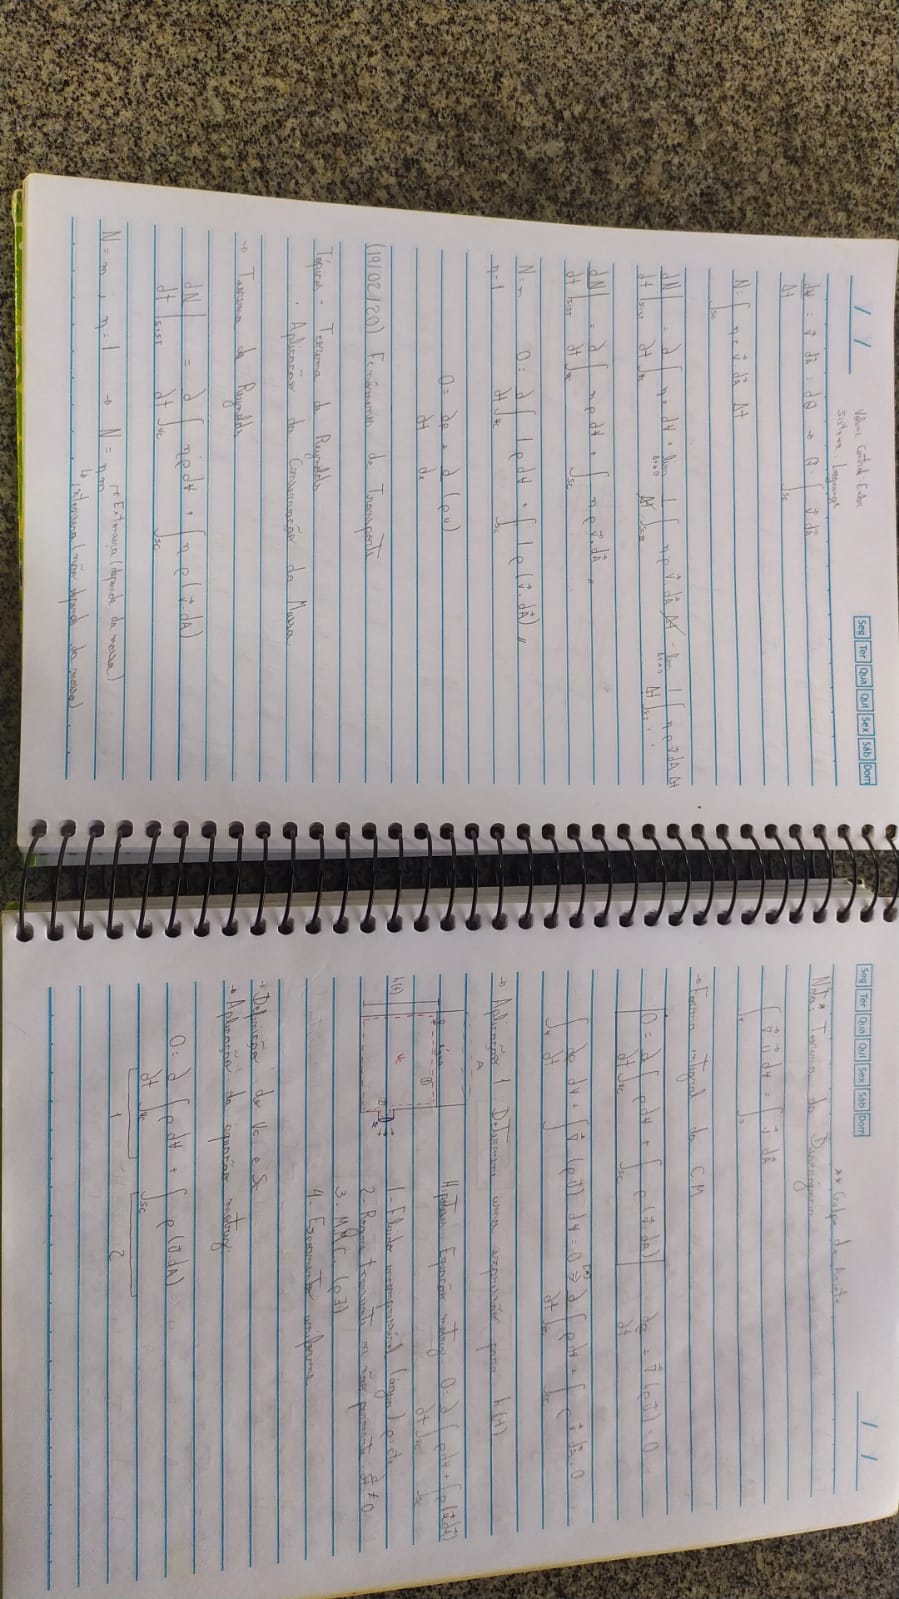 Volume Controle Euler
Sistema - Lagrange
Seg Ter Qua Qui Sex Sáb Dom
dV̶ = v⃗ dA⃗ = dQ → Q = ∫sc v⃗ dA⃗
Δt
N = ∫sc η ρ v⃗ dA⃗ Δt
dN/dt |sist = ∂/∂t ∫vc η ρ dV̶ + lim Δt→0 1/Δt ∫ η ρ v⃗ dA⃗ Δt - lim Δt→0 1/Δt ∫ η ρ v⃗ dA Δt
dN/dt |sist = ∂/∂t ∫vc η ρ dV̶ + ∫sc η ρ v⃗ . dA⃗ //
N = m 0 = ∂/∂t ∫vc 1 ρ dV̶ + ∫sc 1 ρ (v⃗ . dA⃗) //
η = 1
0 = ∂ρ/∂t + ∂/∂x (ρ v)
(19/02/20) Fenômenos de Transporte
Tópico - Teorema de Reynolds
. Aplicação da Conservação da Massa
→ Teorema de Reynolds
dN/dt |sist = ∂/∂t ∫vc η ρ dV̶ + ∫sc η ρ (v⃗ . dA⃗)
Extensiva (depende da massa)
N = m , η = 1 → N = η m
intensiva (não depende da massa)
Seg Ter Qua Qui Sex Sáb Dom
** Golpe de Aríete
Nota* Teorema da Divergência
∫v ∇⃗ v⃗ dV̶ = ∫s v⃗ dA⃗
→ Forma integral da C.M
0 = ∂/∂t ∫vc ρ dV̶ + ∫sc ρ (v⃗ dA⃗) ∂ρ/∂t + ∇⃗ (ρ v⃗) = 0
∫v ∂ρ/∂t dV̶ + ∫ ∇⃗ (ρ v⃗) dV̶ = 0 ⇒ ∂/∂t ∫vc ρ dV̶ + ∫sc ρ v⃗ dA⃗ = 0
→ Aplicação 1 Determine uma expressão para h(t)
A
água
Vc
h(t)
Hipóteses Equação matriz 0 = ∂/∂t ∫vc ρ dV̶ + ∫sc ρ (v⃗ dA⃗)
1- Fluido incompressível (água) ρ = cte
2- Regime transiente ou não permanente ∂/∂t ≠ 0
3- M.M.C. (ρ ∃)
4- Escoamento uniforme
→ Definição de Vc e Sc
→ Aplicação da equação matriz
0 = ∂/∂t ∫vc ρ dV̶ + ∫sc ρ (v⃗ dA⃗)
1 2